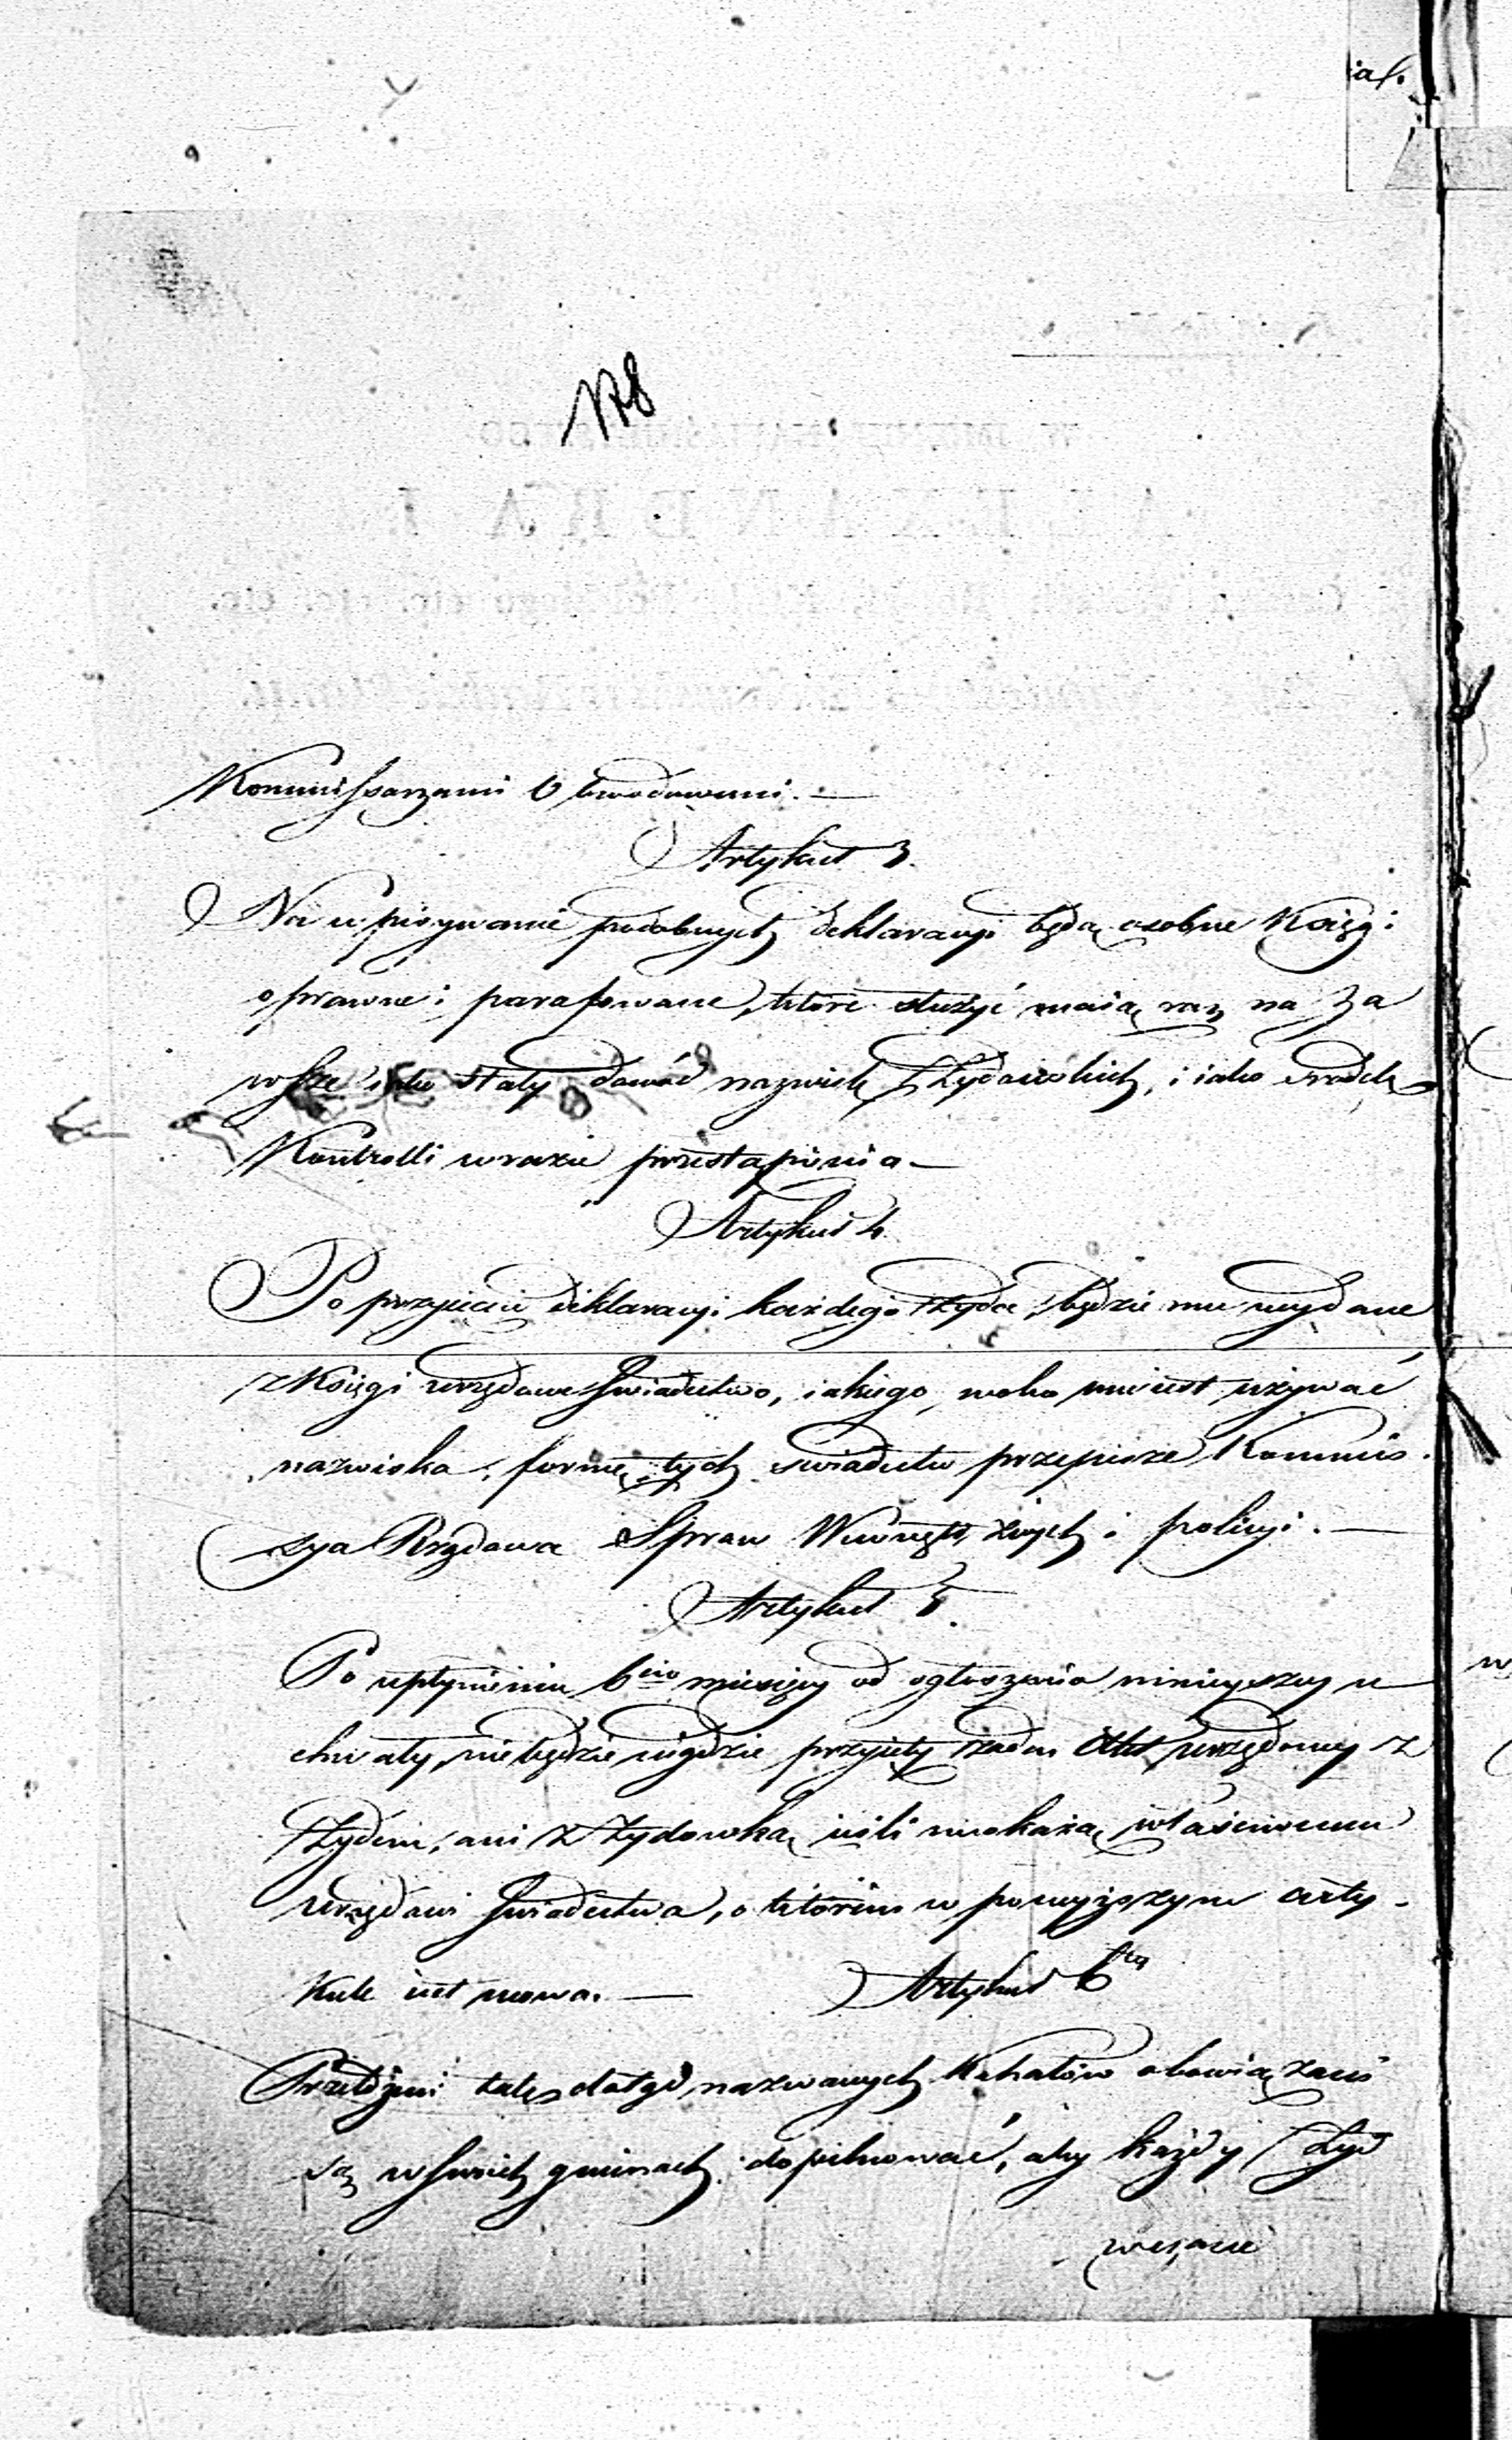 178
Kommissarzami Obwodowemi. —
Artykuł 3.
Na wpisywanie podobnych deklaracyi będą osobne Księgi
oprawne i parafowane, które służyć maią raz na za
wsze iako stały dowód nazwisk Żydowskich, i iako środek
Kontrolli w razie przestąpienia —
Artykuł 4.
Po przyjęciu deklaracyi każdego Żyda, będzie mu wydane
z Księgi urzędowe Świadectwo, iakiego wolno mu iest używać
nazwiska, formę tych świadectw przepisze Kommis
sya Rządowa Spraw Wewnętrznych i policyi. —
Artykuł 5.
Po upłynieniu 6cio miesięcy od ogłoszenia ninieyszey u
chwały, nie będzie nigdzie przyjęty żaden Akt urzędowy z
Żydem, ani z Żydowką ieśli nieokażą właściwemu
urzędowi Świadectwa, o którem w powyższym arty-
kule iest mowa. — Artykuł 6ty
Przełożeni tak dotąd nazwanych Kahałów obowiązani
są w swoich gminach dopilnować, aby każdy Żyd
wczasie